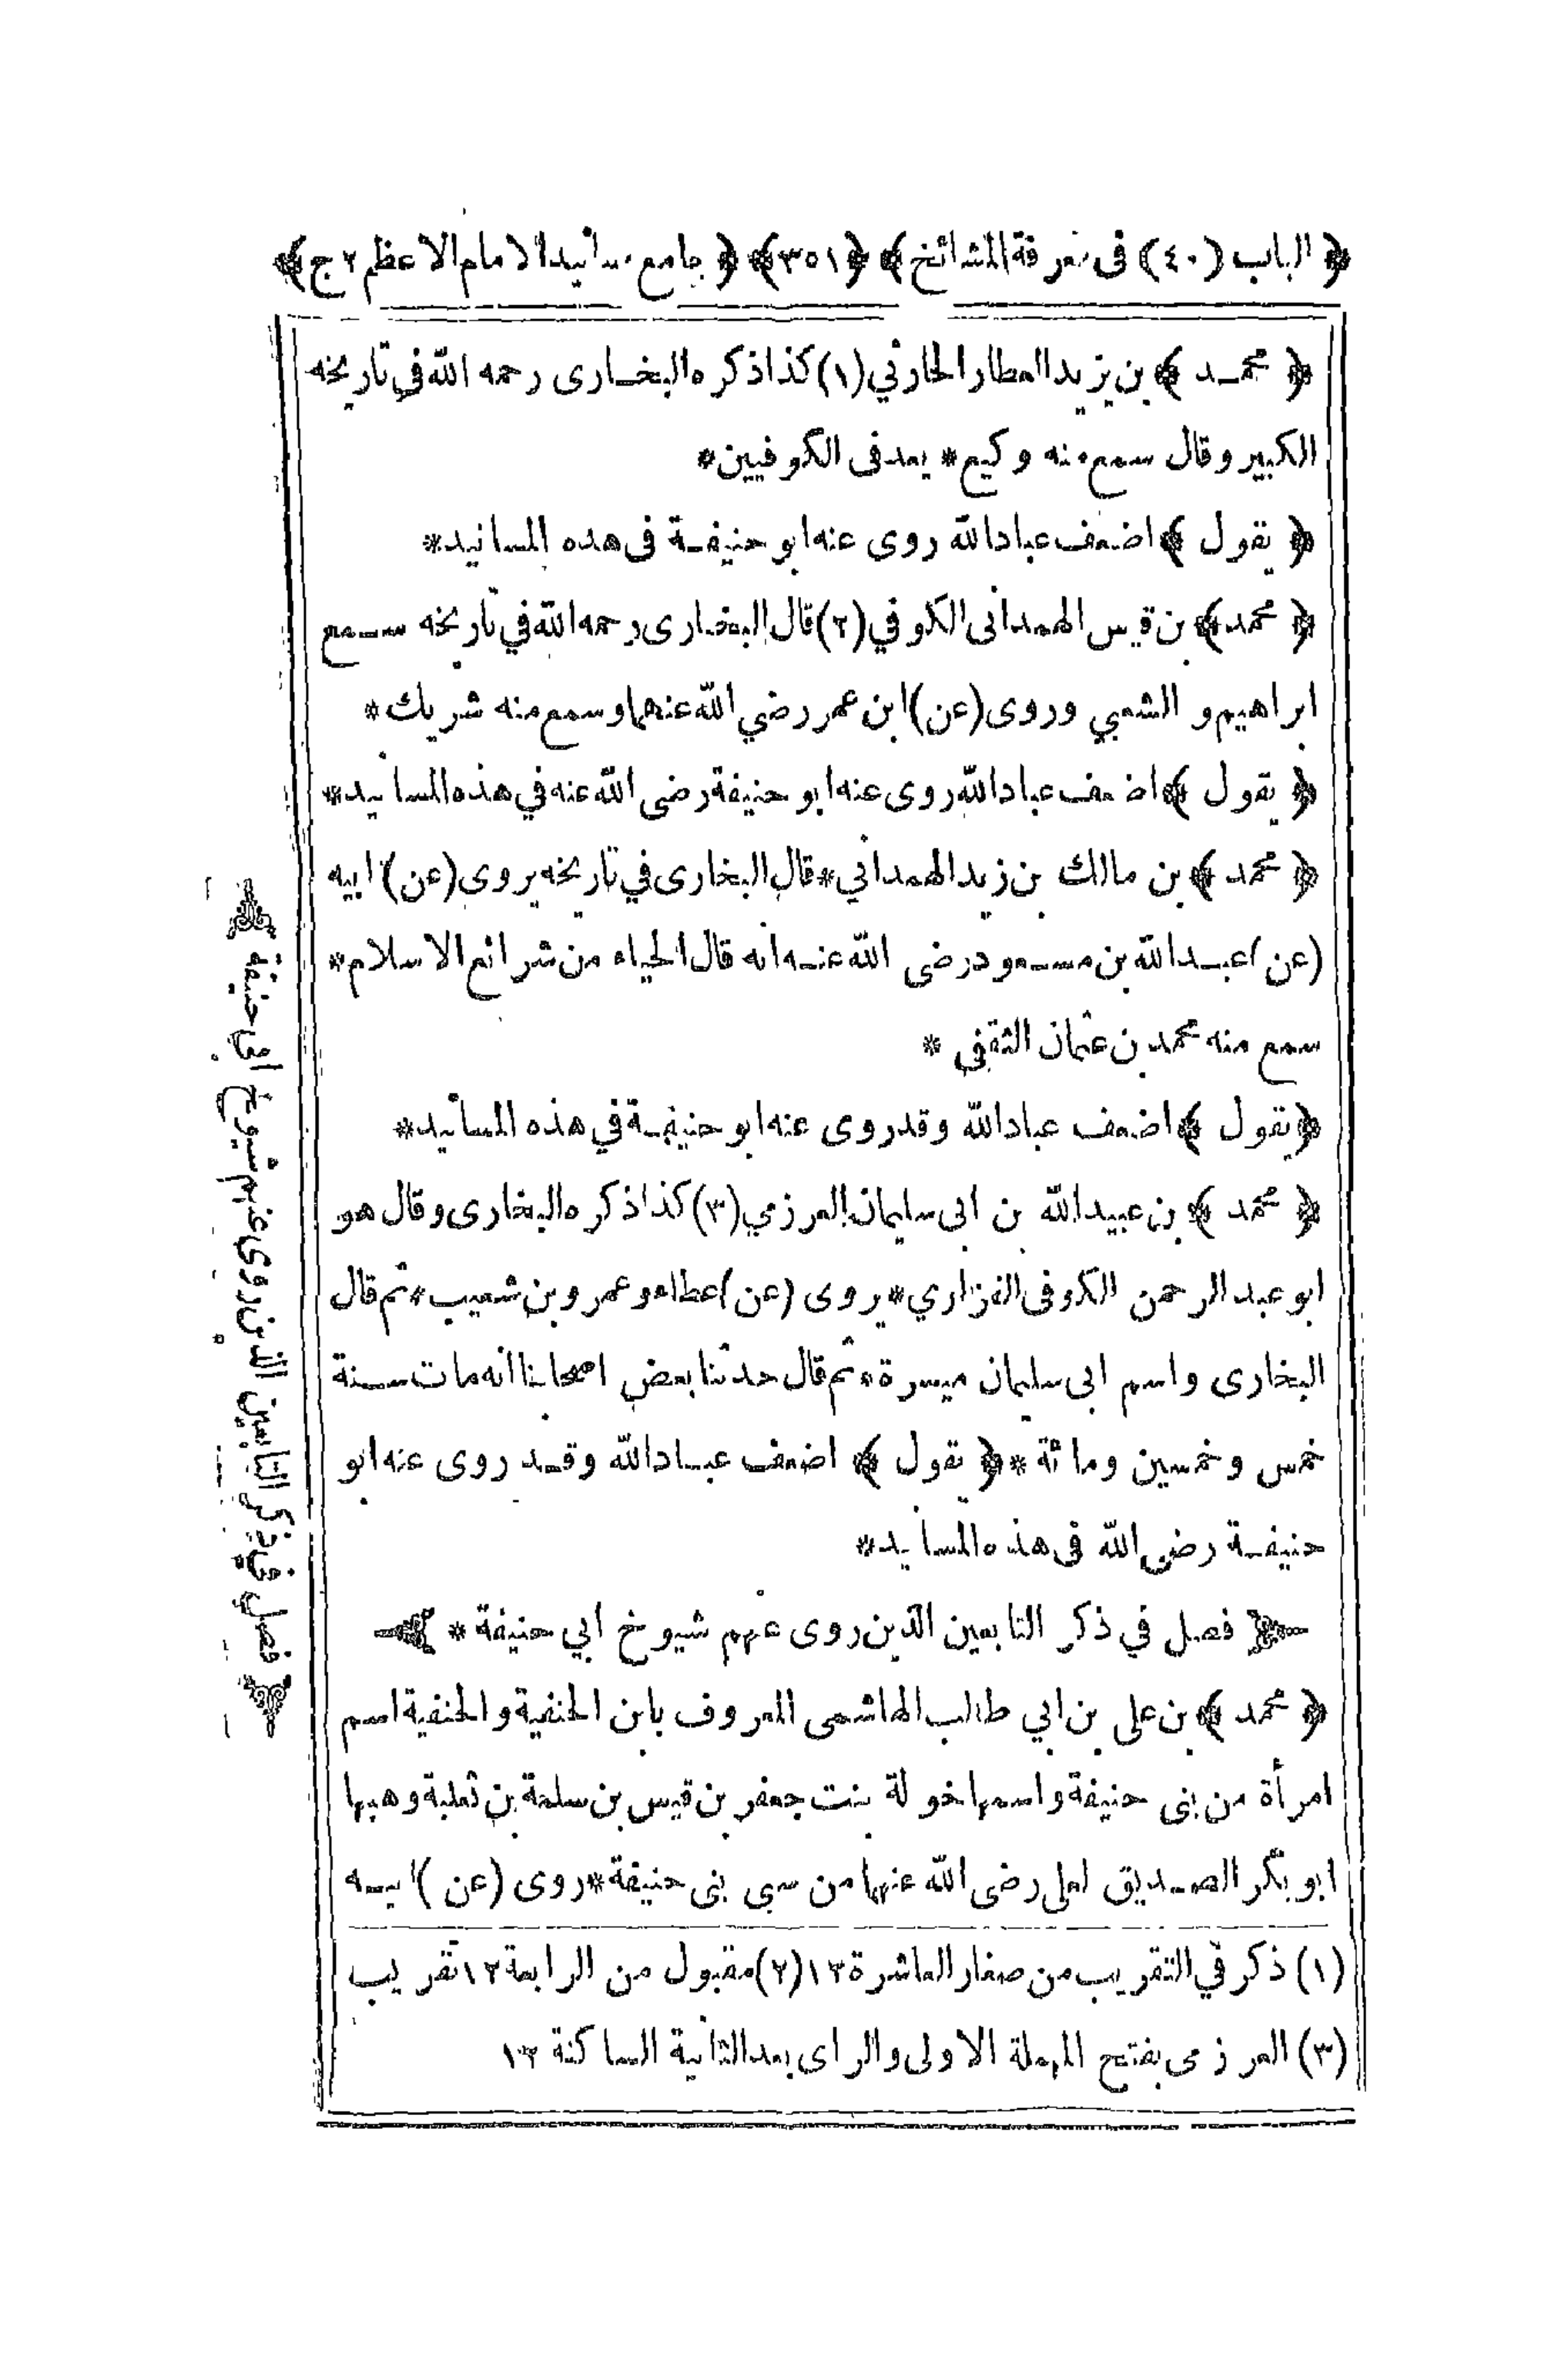 ﴿ الباب (٤٠) فى معرفة المشائخ ﴾ ﴿ ٣٥١ ﴾ ﴿ جامع مسانيد الامام الاعظم ٢ج ﴾
﴿ محمـد ﴾ بن يزيد العطار الحارثي (١) كذا ذكره البخـارى رحمه الله في تاريخه
الكبير وقال سمع منه وكيع * يعد فى الكوفيين *
﴿ يقول ﴾ اضعف عباد الله روى عنه ابو حنيفـة فى هذه المسانيد *
﴿ محمد ﴾ بن قيس الهمدانى الكوفي (٢) قال البخارى رحمه الله في تاريخه سـمع
ابراهيم و الشعبي وروى (عن) ابن عمر رضي الله عنهما وسمع منه شريك *
﴿ يقول ﴾ اضعف عباد الله روى عنه ابو حنيفة رضى الله عنه في هذه المسانيد *
﴿ محمد ﴾ بن مالك بن زيد الهمداني * قال البخارى في تاريخه يروى (عن) ابيه
(عن) عبـد الله بن مسـعود رضى الله عنـه انه قال الحياء من شرائع الاسلام *
سمع منه محمد بن عثمان الثقفى *
﴿ يقول ﴾ اضعف عباد الله وقد روى عنه ابو حنيفـة في هذه المسانيد *
﴿ محمد ﴾ بن عبيد الله بن ابى سليمان العرزمي (٣) كذا ذكره البخارى وقال هو
ابو عبد الرحمن الكوفى الفزاري * يروى (عن) عطاء وعمرو بن شعيب * ثم قال
البخارى واسم ابى سليمان ميسرة * ثم قال حدثنا بعض اصحابنا انه مات سـنة
خمس وخمسين ومائة * ﴿ يقول ﴾ اضعف عبـاد الله وقـد روى عنه ابو
حنيفـة رضى الله فى هذه المسانيد *
فصل في ذكر التابعين الذين روى عنهم شيوخ ابي حنيفة *
﴿ محمد ﴾ بن على بن ابي طالب الهاشمى المعروف بابن الحنفية والحنفية اسم
امرأة من بنى حنيفة واسمها خولة بنت جعفر بن قيس بن سلمة بن ثعلبة وهبها
ابو بكر الصـديق لعلى رضى الله عنهما من سبى بنى حنيفة * روى (عن) ابيـه
(١) ذكر في التقريب من صغار العاشرة ١٢ (٢) مقبول من الرابعة ١٢ تقريب
(٣) العرزمى بفتح المهملة الاولى والراى بعد الثانية الساكنة ١٢
﴿ فصل في ذكر التابعين الذين روى عنهم شيوخ ابي حنيفة ﴾